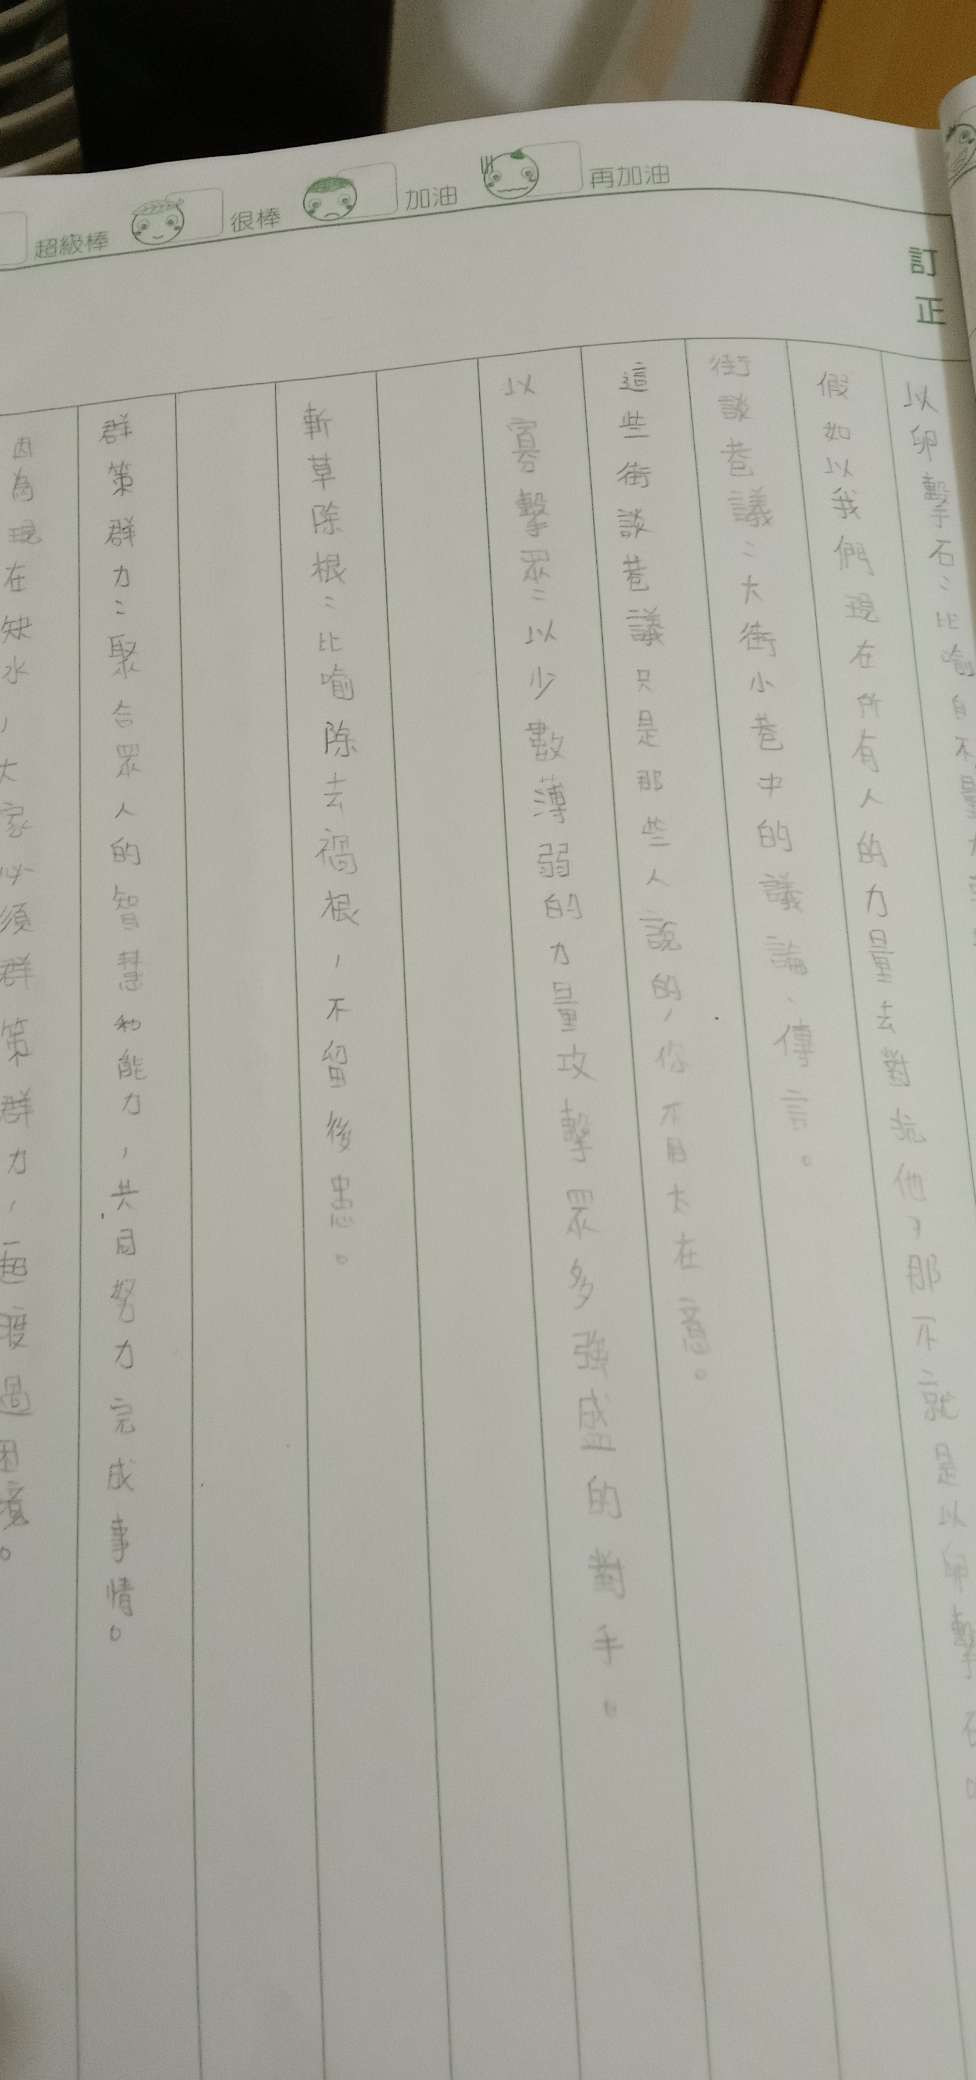 超級棒 很棒 加油 再加油
訂正
以卵擊石：比喻自不量力
假如以我們現在所有人的力量去對抗他，那不就是以卵擊石。
街談巷議：大街小巷中的議論、傳言。
這些街談巷議只是那些人說的，你不用太在意。
以寡擊眾：以少數薄弱的力量攻擊眾多強盛的對手。
斬草除根：比喻除去禍根，不留後患。
群策群力：聚合眾人的智慧和能力，共同努力完成事情。
因為現在缺水，大家必須群策群力，一起渡過困境。